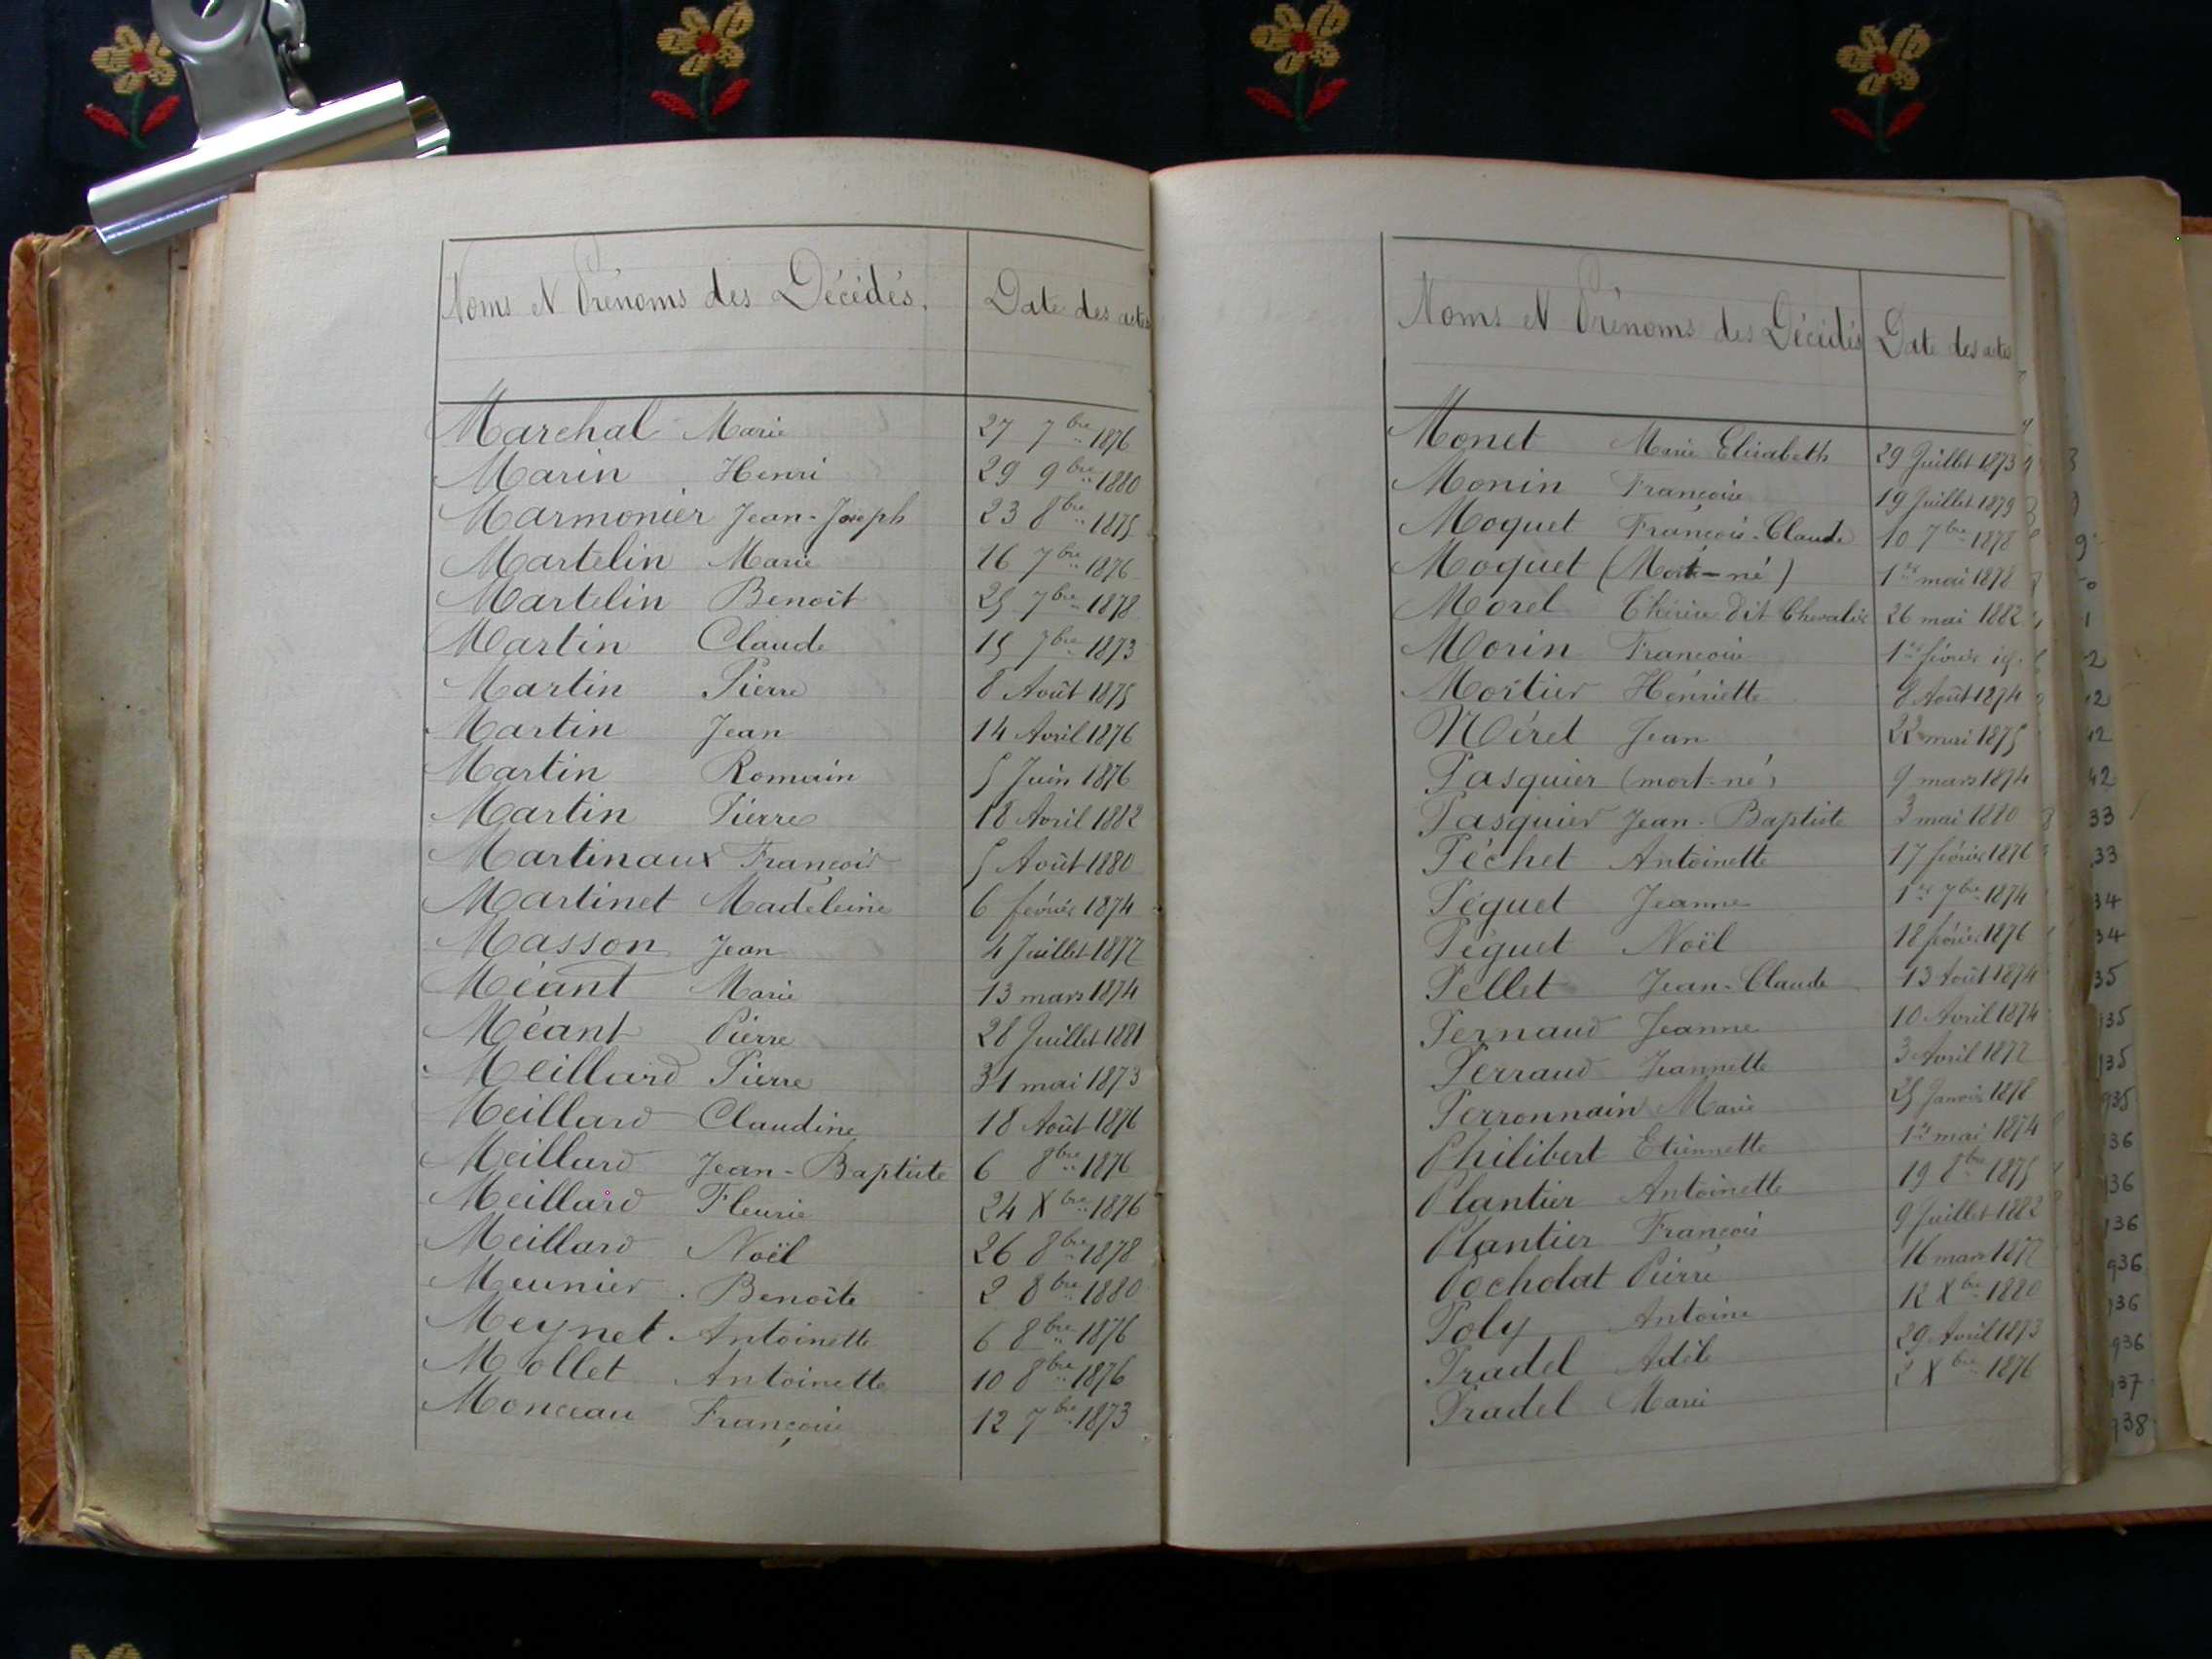 Noms et Prénoms des Décédés. Date des actes
Marchal Marie 27 7bre 1876
Marin Henri 29 9bre 1880
Marmonier Jean-Joseph 23 8bre 1875
Martelin Marie 16 7bre 1876
Martelin Benoît 25 7bre 1878
Martin Claude 15 7bre 1873
Martin Pierre 8 Août 1875
Martin Jean 14 Avril 1876
Martin Romain 5 Juin 1876
Martin Pierre 18 Avril 1882
Martinaux François 5 Août 1880
Martinet Madeleine 6 février 1874
Masson Jean 4 Juillet 1877
Méant Marie 13 mars 1874
Méant Pierre 28 Juillet 1881
Meillard Pierre 31 mai 1873
Meillard Claudine 18 Août 1876
Meillard Jean-Baptiste 6 8bre 1876
Meillard Fleurie 24 Xbre 1876
Meillard Noël 26 8bre 1878
Meunier Benoîte 2 8bre 1880
Meynet Antoinette 6 8bre 1876
Mollet Antoinette 10 8bre 1876
Monceau 12 7bre 1873
Noms et Prénoms des Décédés Date des actes
Monet Marie Elisabeth 29 Juillet 1873
Monin 19 Juillet 1879
Moquet François-Claude 10 7bre 1878
Moquet (Mort-né) 1er mai 1878
Morel Thérèse dit Chevalier 26 mai 1882
Morin 1er février
Mortier Henriette 8 Août 1874
Néret Jean 22 mai 1875
Pasquier (mort-né) 9 mars 1874
Pasquier Jean-Baptiste 3 mai 1880
Péchet Antoinette 17 février 1876
Péguet Jeanne 1er 7bre 1874
Péguet Noël 18 février 1876
Pellet Jean-Claude 13 Août 1874
Pernaud Jeanne 10 Avril 1874
Perraud Jeannette 3 Avril 1877
Perronnain Marie 25 Janvier 1878
Philibert Etiennette 1er mai 1874
Plantier Antoinette 19 8bre 1875
Plantier François 9 Juillet 1882
Pocholat Pierre 16 mars 1877
Poly Antoine 12 Xbre 1880
Pradel Adèle 29 Avril 1873
Pradel Marie 2 Xbre 1876